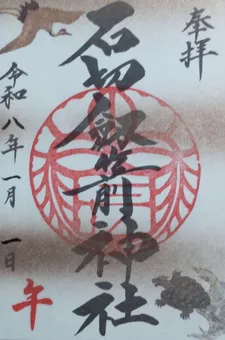 奉拝
石切劔箭神社
令和八年一月一日
午